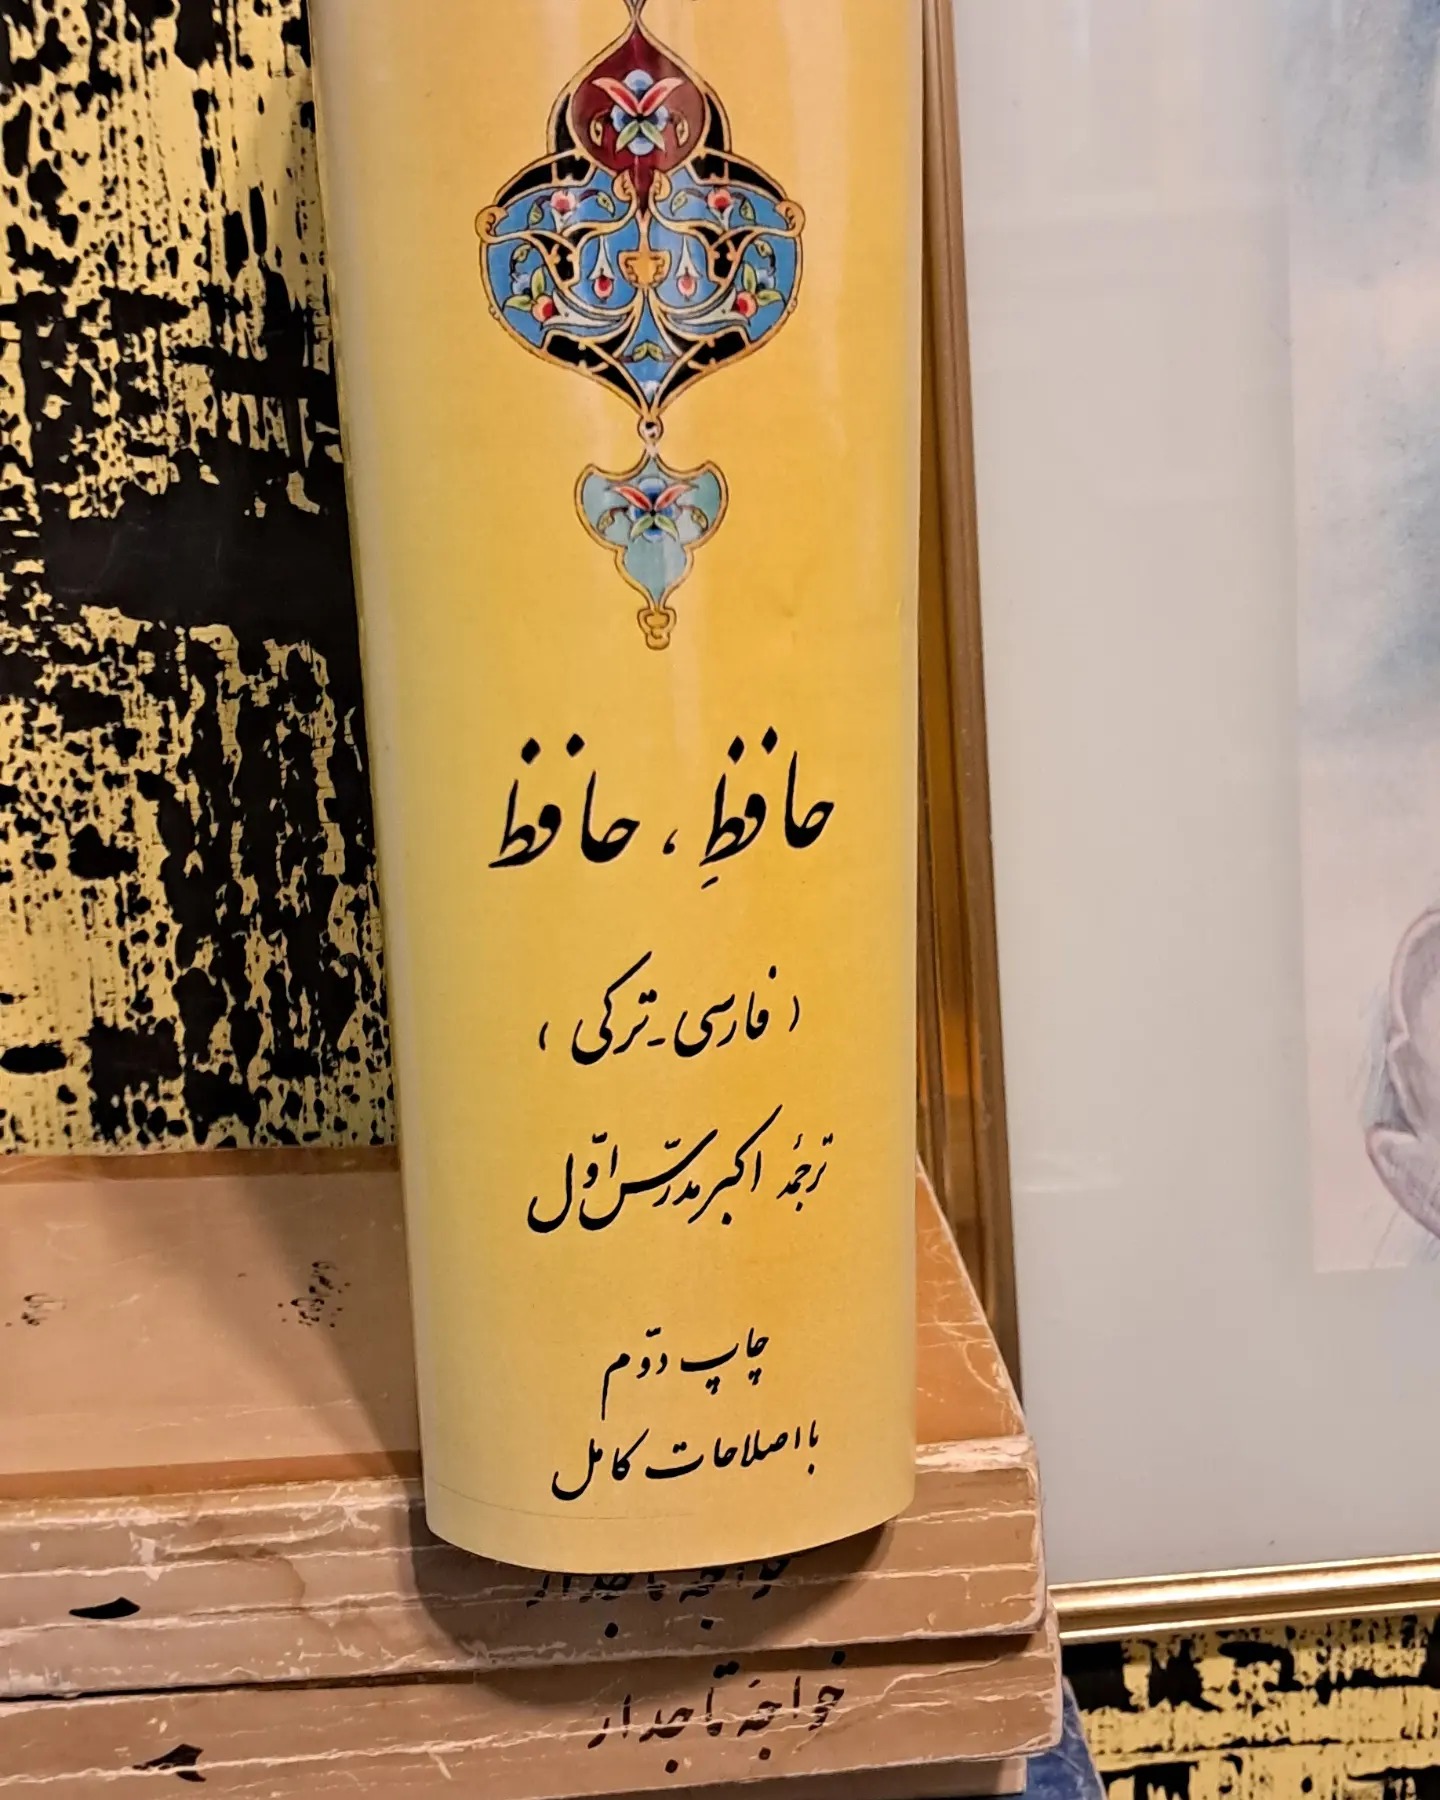 حافظِ ، حافظ
( فارسی ـ ترکی )
ترجمهٔ اکبر مدرّس اوّل
چاپ دوّم
با اصلاحات کامل
خواجه تاجدار
خواجهٔ تاجدار